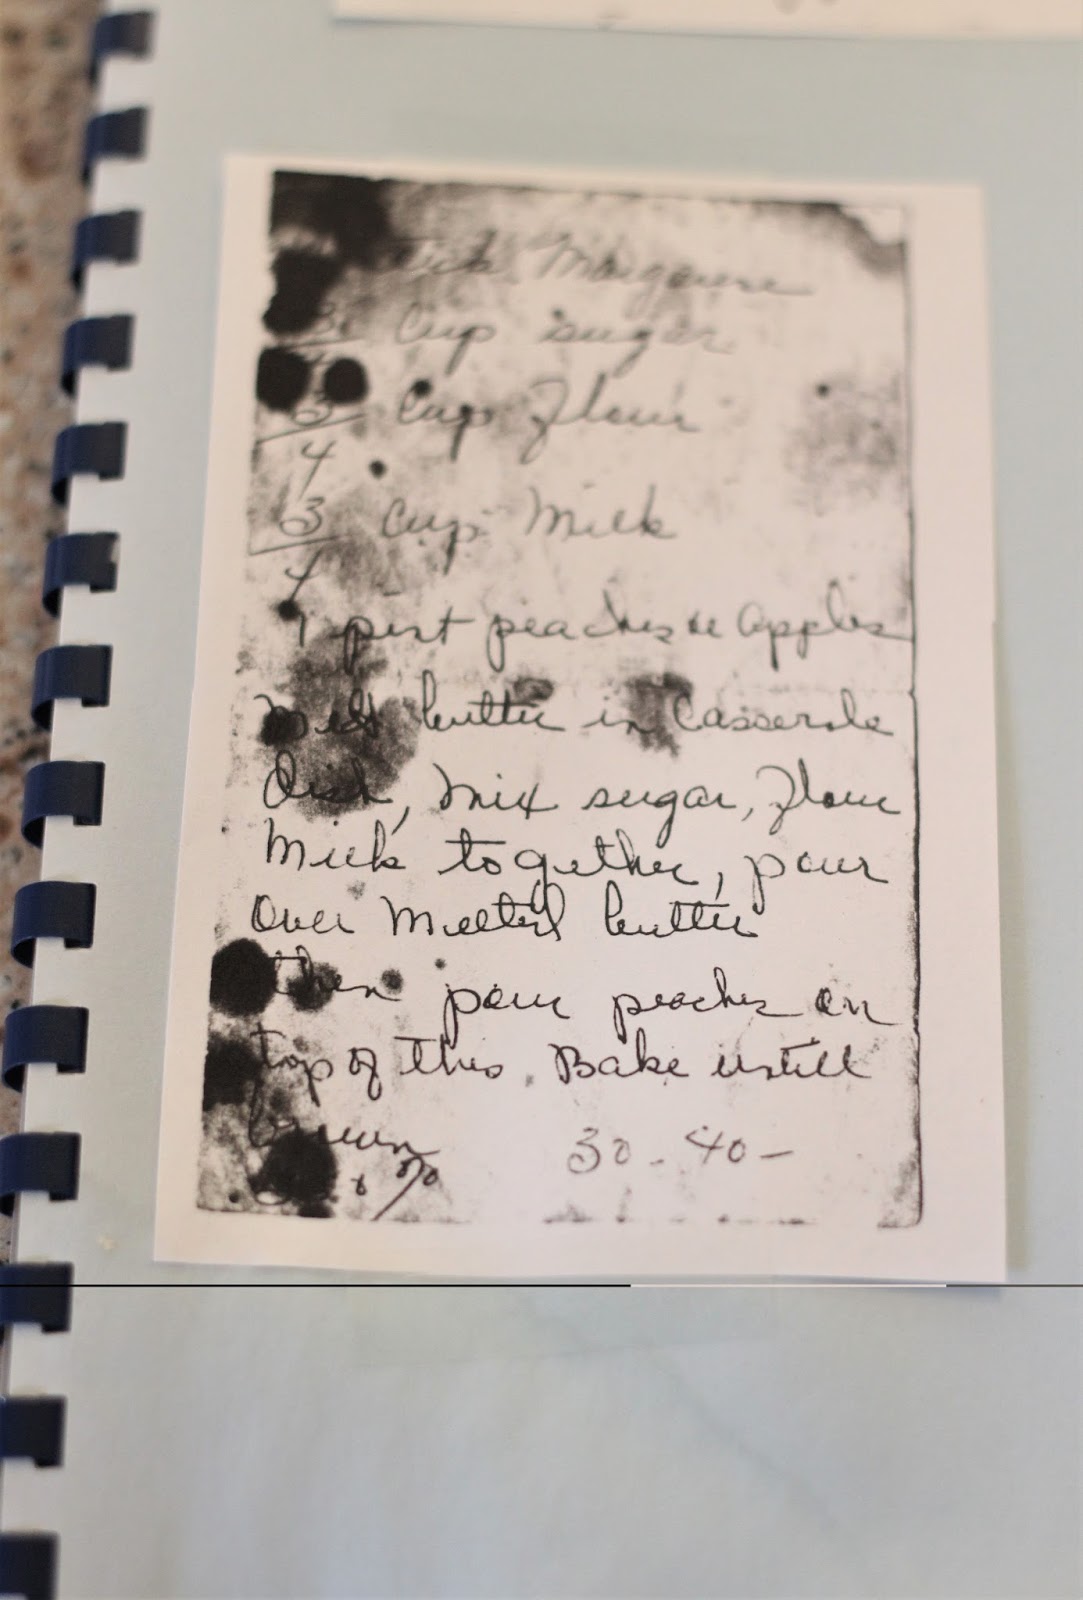 Margerene
3/4 cup sugar
3/4 cup Flour
3/4 cup Milk
1 pint peaches or Apples
Melt butter in Casserole
Dish, Mix sugar, Flour
Milk together, pour
Over Melted butter
then pour peaches on
top of this. Bake untill
brown 30 - 40 -